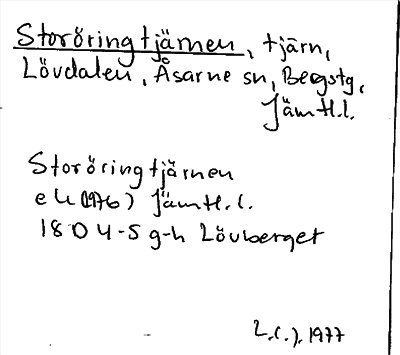 Storöringtjärnen, tjärn,
Lövdalen, Åsarne sn, Bergstg,
Jämtl.l.
Storöringtjärnen
ek (1976) Jämtl.l.
18D 4-5 g-h Lövberget
L.(.). 1977